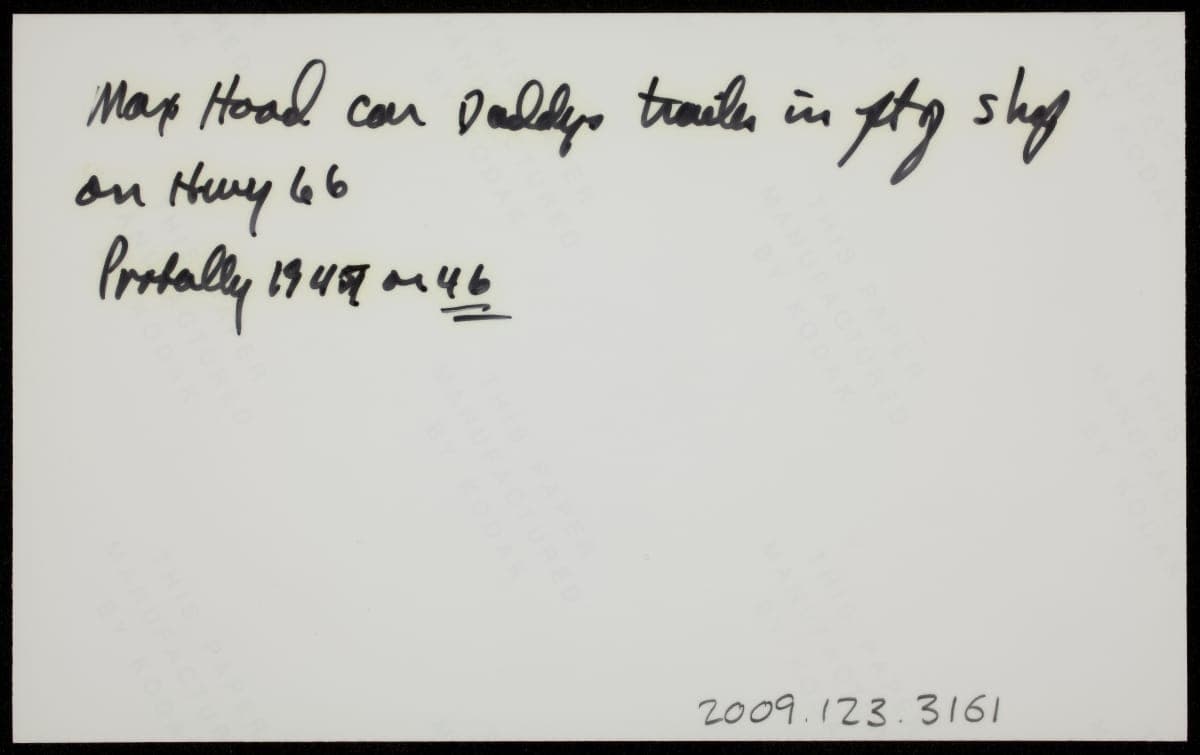 Max Hoad car Daddys trailer in ptg shop
on Hwy 66
Probally 1945 or 46
THIS PAPER
MANUFACTURED
BY KODAK
2009.123.3161